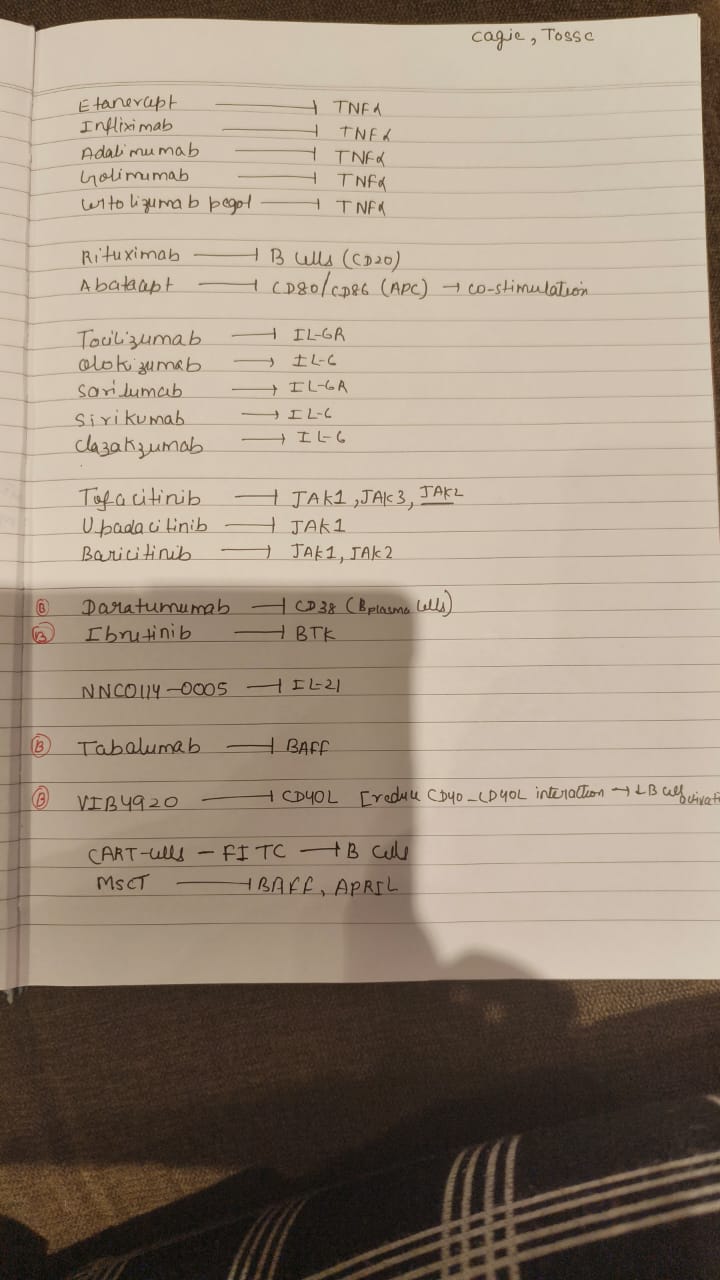 cagie, Tossc
Etanercept ⊣ TNFα
Infliximab ⊣ TNFα
Adalimumab ⊣ TNFα
Golimumab ⊣ TNFα
Certolizumab pegol ⊣ TNFα
Rituximab ⊣ B cells (CD20)
Abatacept ⊣ CD80/CD86 (APC) → co-stimulation
Tocilizumab ⊣ IL-6R
Olokizumab → IL-6
Sarilumab → IL-6R
Sirikumab → IL-6
Clazakzumab → IL-6
Tofacitinib ⊣ JAK1, JAK3, JAK2
Upadacitinib ⊣ JAK1
Baricitinib ⊣ JAK1, JAK2
B Daratumumab ⊣ CD38 (B plasma cells)
B Ibrutinib ⊣ BTK
NNC0114-0005 ⊣ IL-21
B Tabalumab ⊣ BAFF
B VIB4920 ⊣ CD40L [reduce CD40-CD40L interaction → ↓B cell activati
CART-cells - FITC ⊣ B cells
MSCT ⊣ BAFF, APRIL